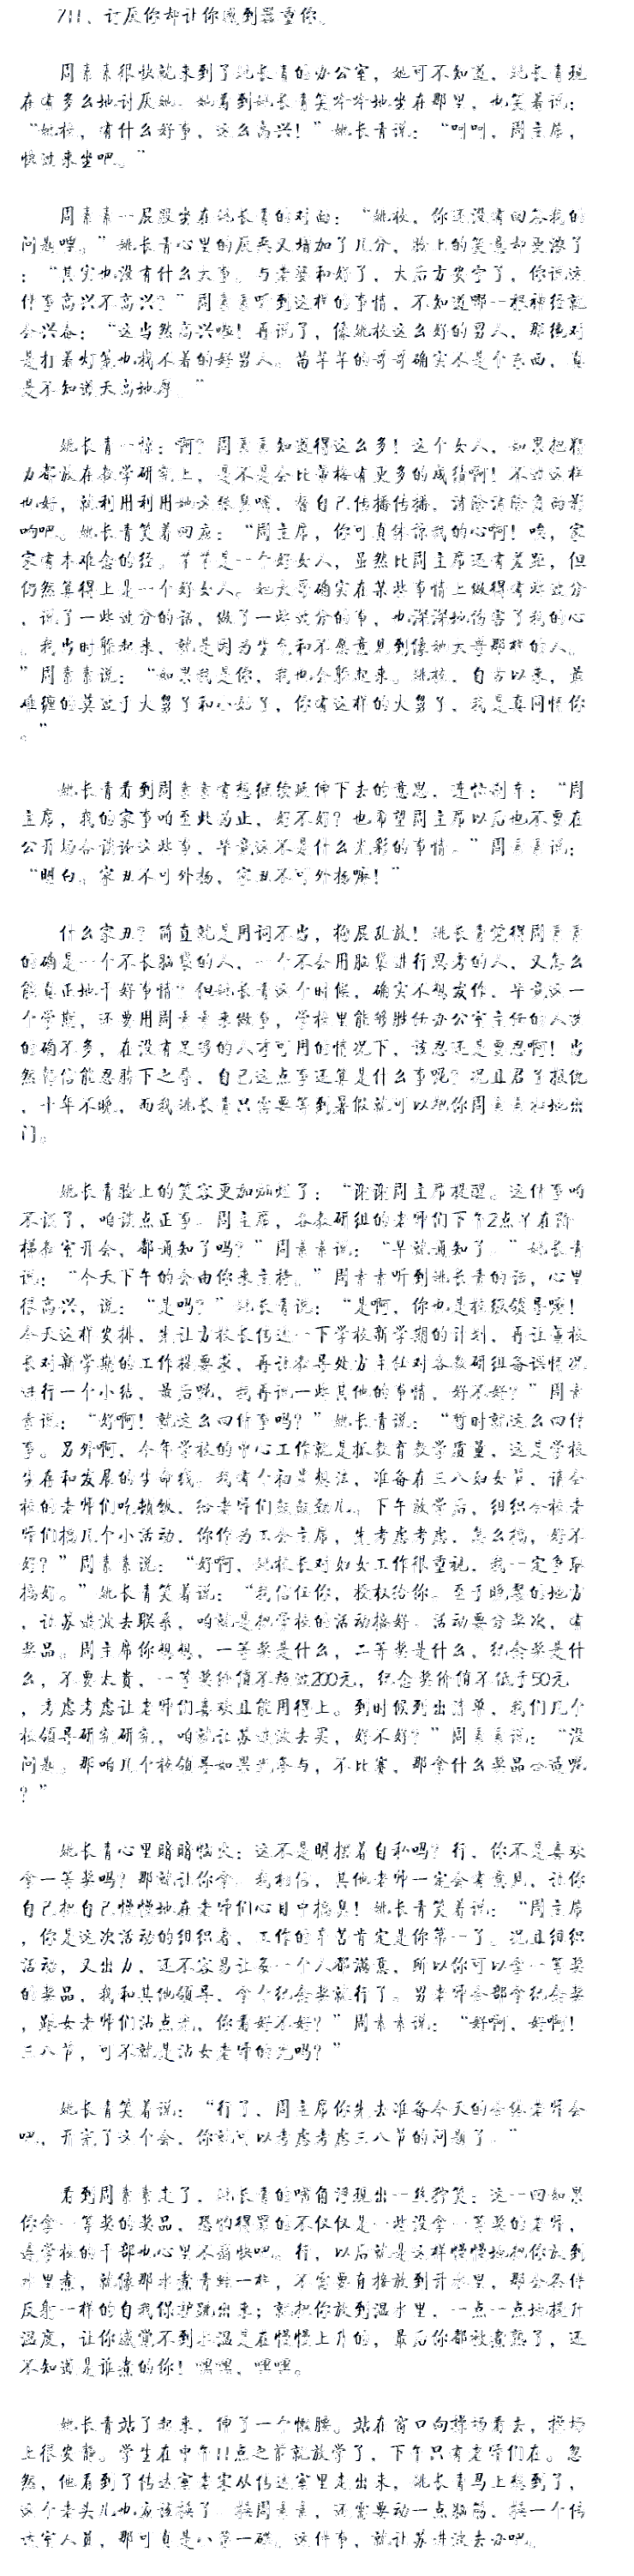 711、讨厌你却让你感到器重你。
周素素很快就来到了姚长青的办公室，她可不知道，姚长青现
在有多么地讨厌她。她看到姚长青笑吟吟地坐在那里，也笑着说：
“姚校，有什么好事，这么高兴！”姚长青说：“呵呵，周主席，
快过来坐吧。”
周素素一屁股坐在姚长青的对面：“姚校，你还没有回答我的
问题哩。”姚长青心里的厌恶又增加了几分，脸上的笑意却更浓了
：“其实也没有什么大事。与老婆和好了，大后方安宁了，你说这
件事高兴不高兴？”周素素听到这样的事情，不知道哪一根神经就
会兴奋：“这当然高兴啦！再说了，像姚校这么好的男人，那绝对
是打着灯笼也找不着的好男人。苗芊芊的哥哥确实不是个东西，真
是不知道天高地厚。”
姚长青一惊：啊？周素素知道得这么多！这个女人，如果把精
力都放在教学研究上，是不是会比黄格有更多的成绩啊！不过这样
也好，就利用利用她这张臭嘴，替自己传播传播，消除消除负面影
响吧。姚长青笑着回应：“周主席，你可真体谅我的心啊！唉，家
家有本难念的经。芊芊是一个好女人，虽然比周主席还有差距，但
仍然算得上是一个好女人。她大哥确实在某些事情上做得有些过分
，说了一些过分的话，做了一些过分的事，也深深地伤害了我的心
。我当时躲起来，就是因为生气和不愿意见到像她大哥那样的人。
”周素素说：“如果我是你，我也会躲起来。姚校，自古以来，最
难缠的莫过于大舅子和小姑子，你有这样的大舅子，我是真同情你
。”
姚长青看到周素素有想继续延伸下去的意思，连忙刹车：“周
主席，我的家事咱至此为止，好不好？也希望周主席以后也不要在
公开场合谈论这些事，毕竟这不是什么光彩的事情。”周素素说：
“明白。家丑不可外扬，家丑不可外扬嘛！”
什么家丑？简直就是用词不当，狗屁乱放！姚长青觉得周素素
的确是一个不长脑袋的人，一个不会用脑袋进行思考的人，又怎么
能真正地干好事情？但姚长青这个时候，确实不想发作，毕竟这一
个学期，还要用周素素来做事，学校里能够胜任办公室主任的人选
的确不多，在没有足够的人才可用的情况下，该忍还是要忍啊！当
然韩信能忍胯下之辱，自己这点事还算是什么事呢？况且君子报仇
，十年不晚，而我姚长青只需要等到暑假就可以把你周素素扫地出
门。
姚长青脸上的笑容更加灿烂了：“谢谢周主席提醒。这件事咱
不说了，咱谈点正事。周主席，各教研组的老师们下午2点半在阶
梯教室开会，都通知了吗？”周素素说：“早就通知了。”姚长青
说：“今天下午的会由你来主持。”周素素听到姚长青的话，心里
很高兴，说：“是吗？”姚长青说：“是啊，你也是校级领导嘛！
今天这样安排，先让方校长传达一下学校新学期的计划，再让黄校
长对新学期的工作提要求，再让教导处方主任对各教研组备课情况
进行一个小结，最后呢，我再说一些其他的事情，好不好？”周素
素说：“好啊！就这么四件事吗？”姚长青说：“暂时就这么四件
事。另外啊，今年学校的中心工作就是抓教育教学质量，这是学校
生存和发展的生命线。我有个初步想法，准备在三八妇女节，请全
校的老师们吃顿饭，给老师们鼓鼓劲儿。下午放学后，组织全校老
师们搞几个小活动，你作为工会主席，先考虑考虑，怎么搞，好不
好？”周素素说：“好啊，姚校长对妇女工作很重视，我一定争取
搞好。”姚长青笑着说：“我信任你，授权给你。至于晚宴的地方
，让苏进波去联系，咱就是把学校的活动搞好。活动要分奖次，有
奖品。周主席你想想，一等奖是什么，二等奖是什么，纪念奖是什
么，不要太贵，一等奖价值不超过200元，纪念奖价值不低于50元
，考虑考虑让老师们喜欢且能用得上。到时候列出清单，我们几个
校领导研究研究，咱就让苏进波去买，好不好？”周素素说：“没
问题。那咱几个校领导如果光参与，不比赛，那拿什么奖品合适呢
？”
姚长青心里暗暗恼火：这不是明摆着自私吗？行，你不是喜欢
拿一等奖吗？那就让你拿。我相信，其他老师一定会有意见，让你
自己把自己慢慢地在老师们心目中搞臭！姚长青笑着说：“周主席
，你是这次活动的组织者，工作的辛苦肯定是你第一了。况且组织
活动，又出力，还不容易让每一个人都满意，所以你可以拿一等奖
的奖品，我和其他领导，拿个纪念奖就行了。男老师全部拿纪念奖
，跟女老师们沾点光，你看好不好？”周素素说：“好啊，好啊！
三八节，可不就是沾女老师的光吗？”
姚长青笑着说：“行了，周主席你先去准备今天的全体老师会
吧，开完了这个会，你就可以考虑考虑三八节的问题了。”
看到周素素走了，姚长青的嘴角浮现出一丝狞笑：这一回如果
你拿一等奖的奖品，恐怕得罪的不仅仅是一些没拿一等奖的老师，
连学校的干部也心里不痛快吧。行，以后就是这样慢慢地把你放到
水里煮，就像那水煮青蛙一样，不需要直接放到开水里，那会条件
反射一样的自我保护跳出来；就把你放到温水里，一点一点地提升
温度，让你感觉不到水温是在慢慢上升的，最后你都被煮熟了，还
不知道是谁煮的你！嘿嘿，嘿嘿。
姚长青站了起来，伸了一个懒腰。站在窗口向操场看去，操场
上很安静。学生在中午11点之前就放学了，下午只有老师们在。忽
然，他看到了传达室老宋从传达室里走出来，姚长青马上想到了，
这个老头儿也应该换了。换周素素，还需要动一点脑筋，换一个传
达室人员，那可真是小菜一碟。这件事，就让苏进波去办吧。